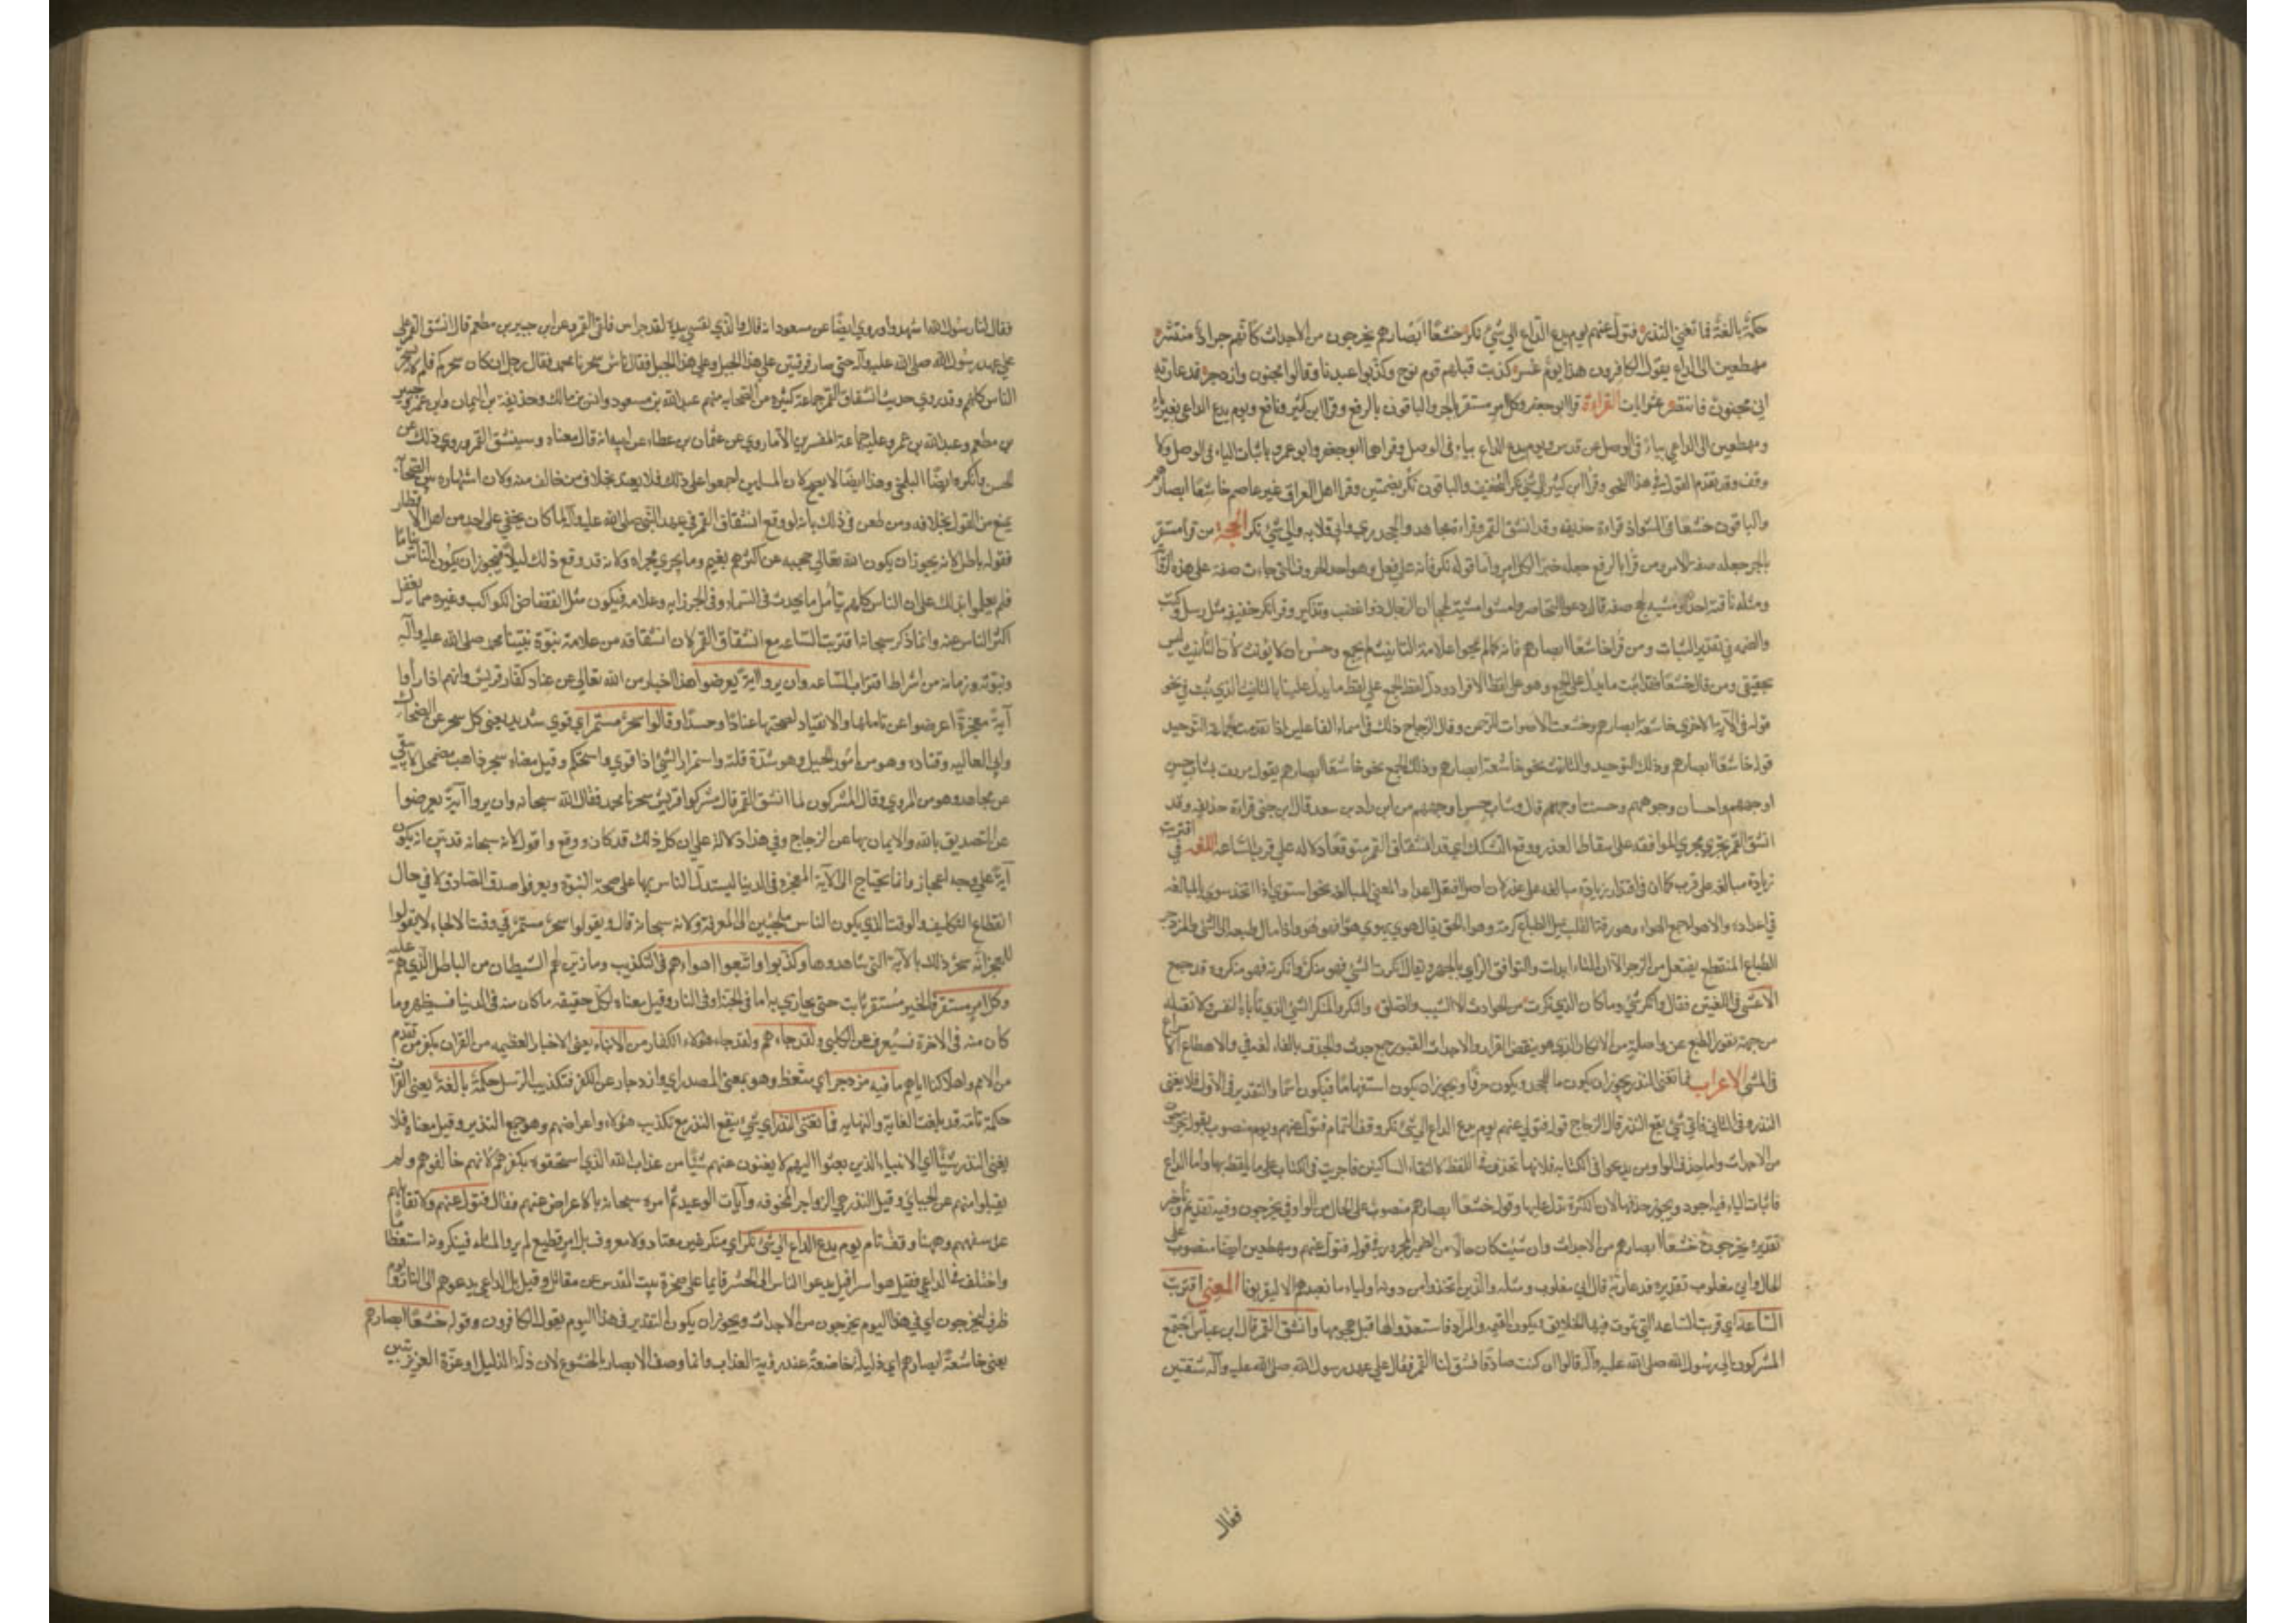 حكمة بالغة فما تغني النذر فتول عنهم يوم يدع الداع الى شيء نكر خشعا ابصارهم يخرجون من الاجداث كانهم جراد منتشر
مهطعين الى الداع يقول الكافرون هذا يوم عسر كذبت قبلهم قوم نوح وكذبوا عبدنا وقالوا مجنون وازدجر فدعا ربه
اني مغلوب فانتصر عشر ايات القراءة قرا ابو جعفر وكل امر مستقر بالجر والباقون بالرفع وقرا ابن كثير ونافع ويوم يدع الداعي بغير ياء
ومهطعين الى الداعي بياء في الوصل
وقف وقد تقدم القول في هذا النحو وقرا ابن كثير الى شيء نكر بالتخفيف والباقون نكر بضمتين وقرا اهل العراق غير عاصم خاشعا ابصارهم
والباقون خشعا في الشواذ قراءة حذيفة وقد انشق القمر وقراءة مجاهد والجحدري وابي قلابه الى شيء نكر الحجة من قرا مستقر
بالجر جعله صفة لامر ومن قرا بالرفع جعله خبرا لكل امر واما قوله نكر فانه على فعل وهو احد الحروف التي جاءت صفة على هذه
والضمه في تقدير الثبات ومن قرا خاشعا ابصارهم فانه كما لم يلحق علامة التانيث لم يجمع وحسن ان لا يؤنث لان التانيث ليس
بحقيقي ومن قال خشعا فقد اثبت ما يدل على الجمع وهو على لفظ الافراد ودل لفظ الجمع على لفظ ما يدل عليه التانيث الذي ثبت في نحو
قوله في الآية الاخرى خاشعة ابصارهم وخشعت الاصوات للرحمن وقال الزجاج ذلك في اسماء الفاعلين اذا تقدمت على الجماعة التوحيد
قوله خاشعا ابصارهم وذلك التوحيد والتانيث نحو خاشعة ابصارهم وذلك الجمع نحو خاشعا ابصارهم يقول مررت بشاب حسن
اوجههم وحسان وجوههم وحسنة اوجههم قال وشباب حسن اوجههم من اياد بن نزار بن معد قال ابن جني قراءة حذيفة وقد
انشق القمر يجري مجرى الموافقة على اسقاط العذر ورفع التشكك اي قد انشقاق القمر متوقعا دلالة على قرب الساعة اللغة في اقتربت
زيادة مبالغة على قرب كما ان في اقتدر زيادة مبالغة على قدر لان اصل افتعل اعداد المعنى بالمبالغة نحو اشتوى اذا اتخذ شوى بالمبالغة
في اعداده والاهواء جمع الهوى وهو رقة القلب بميل الطباع كرقة هواء الجو يقال هوى يهوي هوى فهو هو اذا مال طبعه الى الشيء والمزدجر
الاعشى في اللغتين فقال وانكرتني وما كان الذي نكرت من الحوادث الا الشيب والصلعا والنكر والمنكر الشيء الذي تاباه النفس ولا تقبله
من جهة نفور الطبع عنه واصله من الانكار الذي هو نقيض الاقرار والاجداث القبور جمع جدث والجدف بالفاء لغة فيه والاهطاع الاسراع
في المشي الاعراب فما تغني النذر يجوز ان يكون ما للجحد ويكون حرفا ويجوز ان يكون استفهاما فيكون اسما والتقدير في الاول فلا يغني
النذر وفي الثاني فاي شيء يغني النذر قال الزجاج قوله فتول عنهم يوم يدع الداع الى شيء نكر وقف التمام فتول عنهم ويوم منصوب بقوله يخرجون
من الاجداث واما حذف الواو من يدعو في الكتابة فلانها تحذف في اللفظ لالتقاء الساكنين فاجريت في الكتاب على ما يلفظ بها واما الداع
فاثبات الياء فيه اجود ويجوز حذفها لان الكسرة تدل عليها وقوله خشعا ابصارهم منصوب على الحال من الواو في يخرجون وفيه تقديم وتاخير
تقديره يخرجون خشعا ابصارهم من الاجداث وان شئت كان حالا من الضمير المجرور في قوله فتول عنهم ومهطعين ايضا منصوب على
الحال واني مغلوب تقديره فدعا ربه قال اني مغلوب ومثله والذين اتخذوا من دونه اولياء ما نعبدهم الا ليقربونا المعنى اقتربت
الساعة اي قربت الساعة التي تموت فيها الخلايق فيكون القيمة والمراد فاستعدوا لها قبل هجومها وانشق القمر قال ابن عباس اجتمع
المشركون الى رسول الله صلى الله عليه وآله قالوا ان كنت صادقا فشق لنا القمر فقال على عهد رسول الله صلى الله عليه وآله شقتين
فقال
فقال لنا رسول الله اشهدوا وروي ايضا عن مسعود انه قال والذي نفسي بيده لقد حراء بين فلقي القمر وعن ابن جبير بن مطعم قال انشق القمر على
على عهد رسول الله صلى الله عليه وآله حتى صار فرقتين على هذا الجبل وعلى هذا الجبل فقال ناس سحرنا محمد فقال رجل ان كان سحركم فلم يسحر
الناس كلهم وقد روي حديث انشقاق القمر جماعة كثيرة من الصحابه منهم عبد الله بن مسعود وانس بن مالك وحذيفة بن اليمان وابن عمر وجبير
بن مطعم وعبد الله بن عمرو وعليه جماعة المفسرين الا ما روي عن عثمان بن عطاء عن ابيه انه قال معناه وسينشق القمر وروي ذلك عن
الحسن وانكره ايضا البلخي وهذا ايضا لا يصح لان المسلمين اجمعوا على ذلك فلا يعتد بخلاف من خالف منه ولان اشتهاره بين الصحابة
يمنع من القول بخلافه ومن طعن في ذلك بانه لو وقع انشقاق القمر في عهد النبي صلى الله عليه وآله لما كان يخفى على احد من اهل الاقطار
فقوله باطل لانه يجوز ان يكون الله تعالى حجبه عن اكثرهم بغيم وما يجري مجراه ولانه قد وقع ذلك ليلا فيجوز ان يكون الناس نياما
فلم يعلموا بذلك على ان الناس كلهم يتأمل ما يحدث في السماء وفي الجو من آية وعلامة فيكون مثل انقضاض الكواكب وغيره مما يغفل
اكثر الناس عنه وانما ذكر سبحانه اقتربت الساعة مع انشقاق القمر لان انشقاقه من علامة نبوة نبينا محمد صلى الله عليه وآله
ونبوته وزمانه من اشراط اقتراب الساعة وان يروا آية يعرضوا هذا اخبار من الله تعالى عن عناد كفار قريش وانهم اذا راوا
آية معجزة اعرضوا عن تاملها والانقياد لصحتها عنادا وحسدا وقالوا سحر مستمر اي قوي شديد يعني كل سحر عن الضحاك
وابي العاليه وقتاده وهو من امرار الحبل وهو شدة فتله واستمرار الشيء اذا قوي واستحكم وقيل معناه سحر ذاهب مضمحل لا يبقى
عن مجاهد وهو من المروي وقال المشركون لما انشق القمر قال مشركوا قريش سحرنا محمد فقال الله سبحانه وان يروا آية يعرضوا
عن التصديق بالله والايمان بها عن الزجاج وفي هذا دلالة على ان كل ذلك قد كان ووقع واقول لانه سبحانه قد بين انه يكون
آية على وجه اعجاز وانما يحتاج الى الآية المعجزه في الدنيا ليستدل الناس بها على صحة النبوة ويعرفوا صدق الصادق لا في حال
انقطاع التكليف والوقت الذي يكون الناس ملجئين الى المعرفة ولانه سبحانه قال ويقولوا سحر مستمر وفي وقت الالجاء لا يقولوا
للمعجز انه سحر وكذبوا بالآية التي شاهدوها وكذبوا واتبعوا اهواءهم في التكذيب وما زين لهم الشيطان من الباطل الذي هم عليه
وكل امر مستقر فالخير مستقر ثابت حتى يجازي به اما في الجنة او في النار وقيل معناه لكل حقيقه ما كان منه في الدنيا فسيظهر وما
كان منه في الاخرة فسيعرف عن الكلبي ولقد جاءهم ولقد جاء هؤلاء الكفار من الانباء يعني الاخبار العظيمه من القرآن بكفر من تقدم
من الامم واهلاكنا اياهم ما فيه مزدجر اي متعظ وهو بمعنى المصدر اي وازدجار عن الكفر وتكذيب الرسل حكمة بالغة يعني القرآن
حكمة تامة قد بلغت الغاية والنهايه فما تغني النذر اي شيء ينفع النذر مع تكذيب هؤلاء واعراضهم وهو جمع النذير وقيل معناه فلا
يغني النذر شيئا اي الانبياء الذين بعثوا اليهم لا يغنون عنهم شيئا من عذاب الله الذي استحقوه بكفرهم لانهم خالفوهم ولم
يقبلوا منهم عن الجبائي وقيل النذر هي الزواجر المخوفه وآيات الوعيد ثم امره سبحانه بالاعراض عنهم فقال فتول عنهم ولا تقابلهم
على سفههم وههنا وقف تام يوم يدع الداع الى شيء نكر اي منكر غير معتاد ولا معروف بل امر فظيع لم يروا مثله فينكرونه استعظاما
واختلف في الداعي فقيل هو اسرافيل يدعوا الناس الى الحشر قايما على صخرة بيت المقدس عن مقاتل وقيل بل الداعي يدعوهم الى النار ويوم
ظرف ليخرجون اي في هذا اليوم يخرجون من الاجداث ويجوز ان يكون التقدير في هذا اليوم يقول الكافرون وقوله خشعا ابصارهم
يعني خاشعة ابصارهم اي ذليلة خاضعة عند رؤية العذاب وانما وصف الابصار بالخشوع لان ذلة الذليل او عزة العزيز تتبين